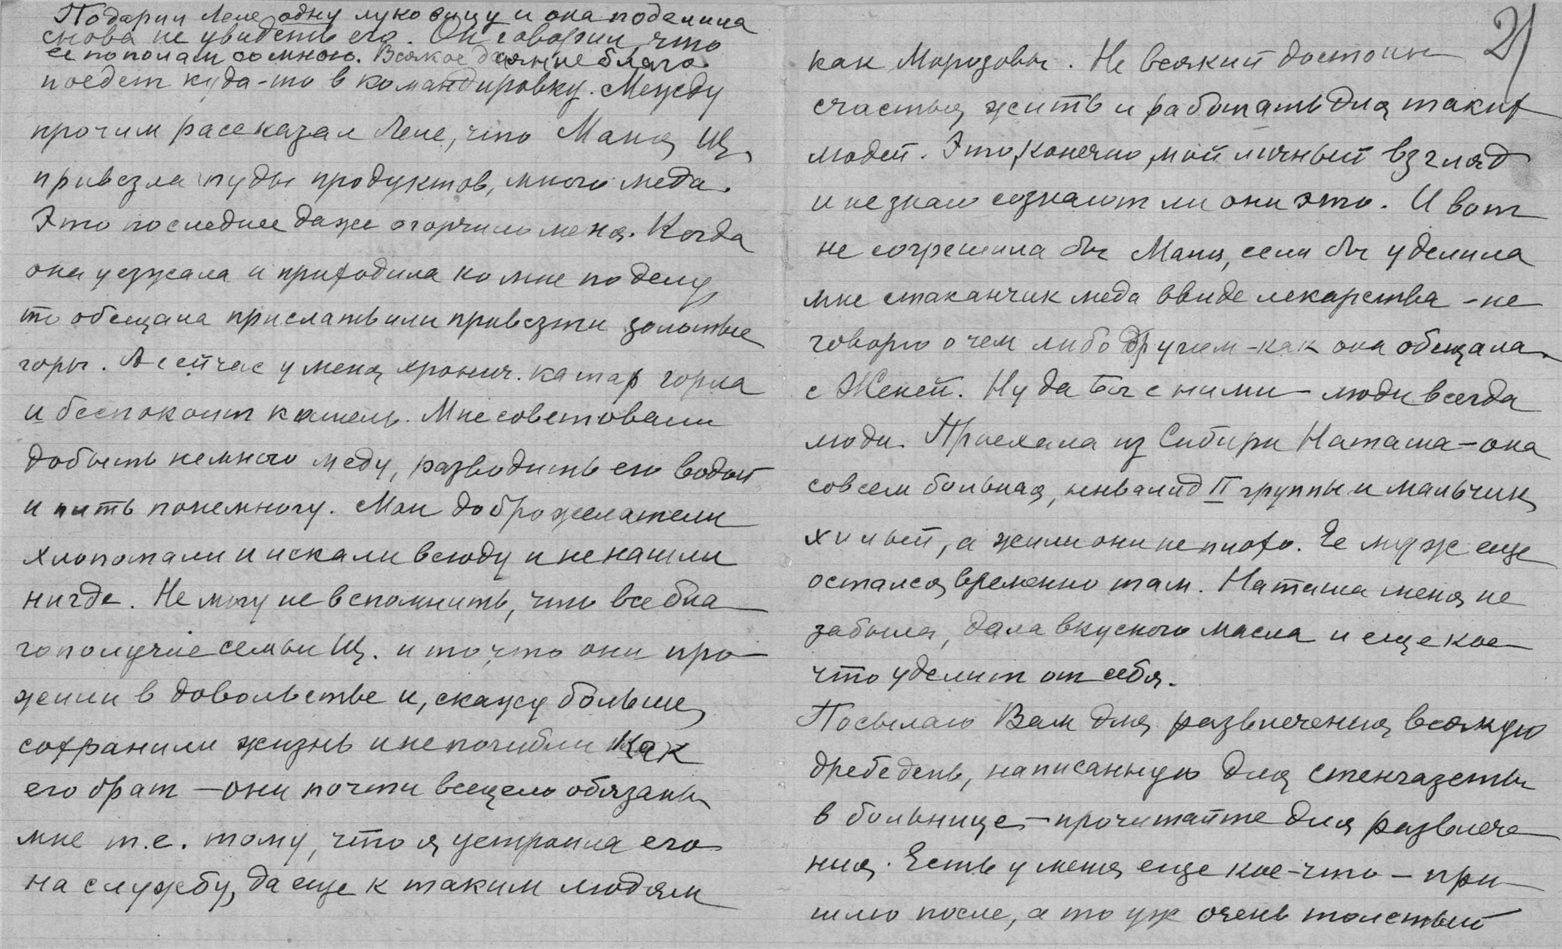 Подарил Леле одну луковицу и она поделила
снова не увидеть его. Он говорил, что
ее пополам со мною. Всякое даяние благо.
поедет куда-то в командировку. Между
прочим рассказал Леле, что Маня Щ.
привезла пуды продуктов, много меда.
Это последнее даже огорчило меня. Когда
она уезжала и приходила ко мне по делу
то обещала прислать или привезти золотые
горы. А сейчас у меня хронич. катар горла
и беспокоит кашель. Мне советовали
добыть немного меду, разводить его водой
и пить понемногу. Мои доброжелатели
хлопотали и искали всюду и не нашли
нигде. Не могу не вспомнить, что все бла
гополучие семьи Щ. и то, что они про-
жили в довольстве и, скажу больше,
сохранили жизнь и не погибли как
его брат — они почти всецело обязаны
мне т.е. тому, что я устроила его
на службу, да еще к таким людям
21
как Морозовы. Не всякий достоин
счастья жить и работать для таких
людей. Это, конечно, мой личный взгляд
и не знаю сознают ли они это. И вот
не согрешила бы Маня, если бы уделила
мне стаканчик меда ввиде лекарства - не
говорю о чем либо другом - как она обещала
с Женей. Ну да Бог с ними - люди всегда
люди. Приехала из Сибири Наташа - она
совсем больная, инвалид II группы и мальчик
хилый, а жили они не плохо. Ее муж еще
остался временно там. Наташа меня не
забыла, дала вкусного масла и еще кое-
что уделит от себя.
Посылаю Вам для развлечения всякую
дребедень, написанную для стенгазеты
в больнице - прочитайте для развлече
ния. Есть у меня еще кое-что - при-
шлю после, а то уж очень толстый